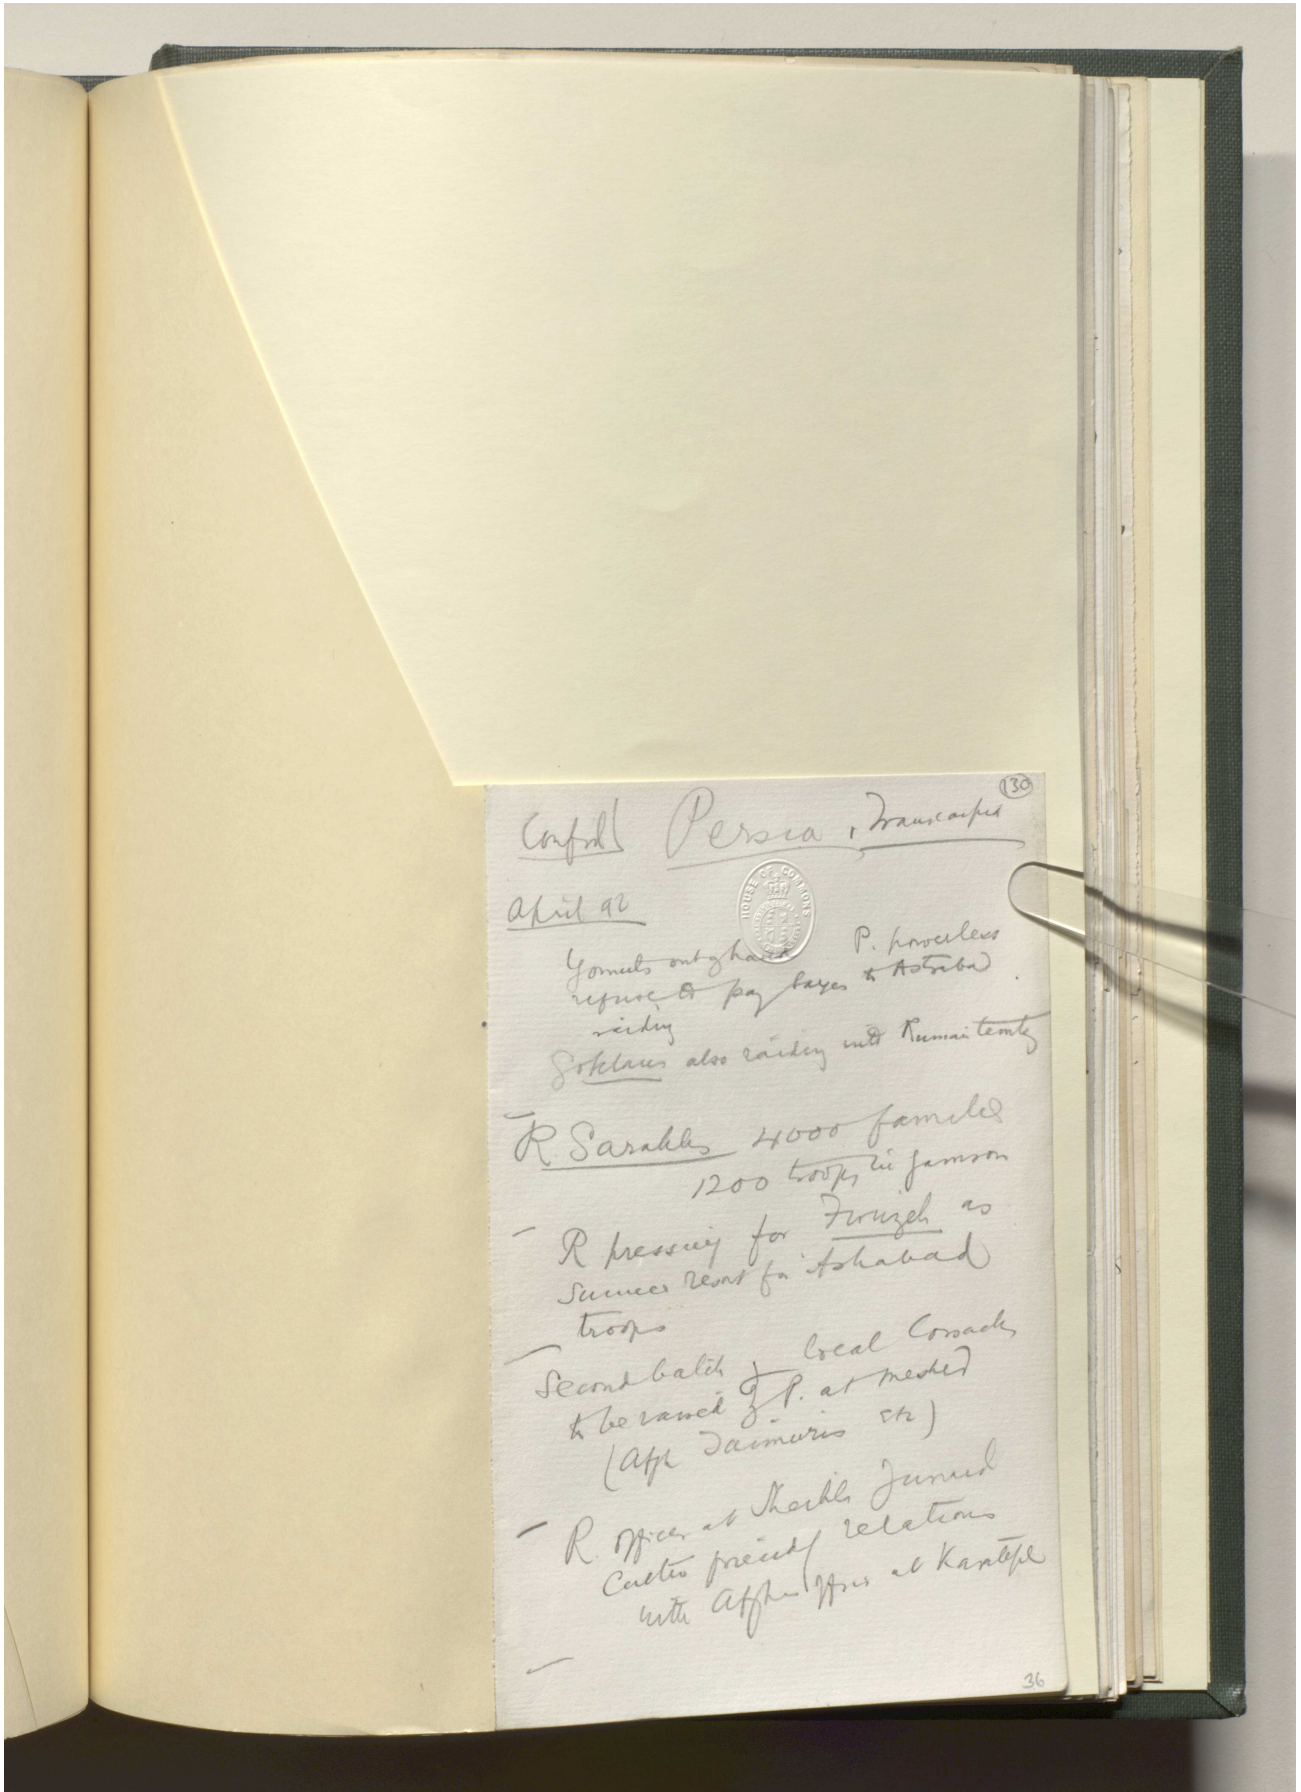 130
Confdl Persia, Transcaspia
HOUSE OF COMMONS
April 92
Yomuts out of hand P. powerless
refuse to pay taxes to Astrabad
raiding
Goklans also raiding into Russian territy
R Sarakhs 4000 families
1200 troops in garrison
R pressing for Firuzeh as
summer resort for Askabad
troops
Second batch of local Cossacks
to be raised by P. at Meshed
(Afgh Taimuris etc)
R. officer at Sheikh Junaid
cultiv friendly relations
with Afghan offrs at Karatepe
36